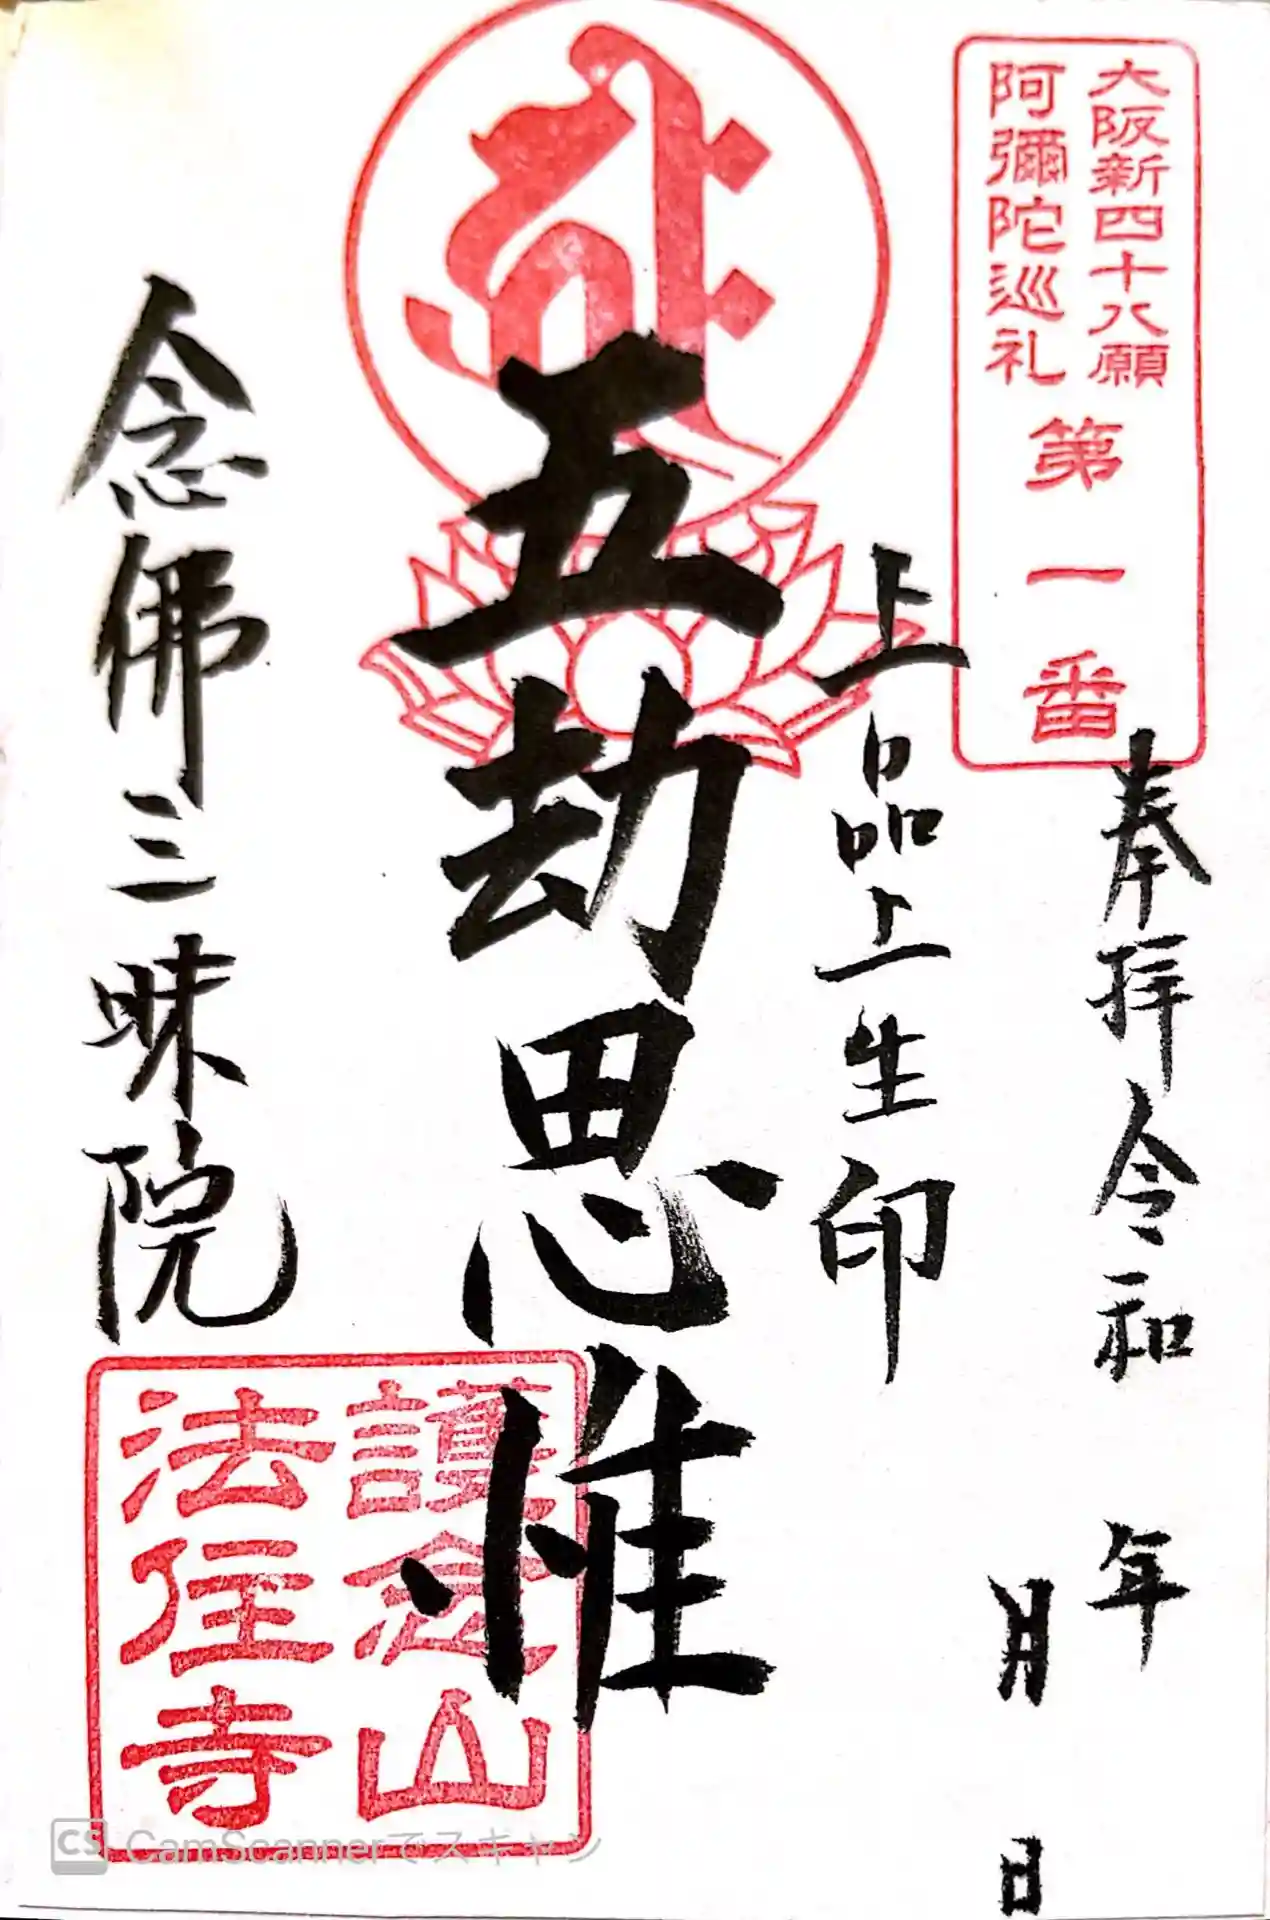 大阪新四十八願
阿彌陀巡礼
第一番
奉拝令和 年
月 日
上品上生印
五劫思惟
念佛三昧院
護念山
法住寺
CS CamScannerでスキャン